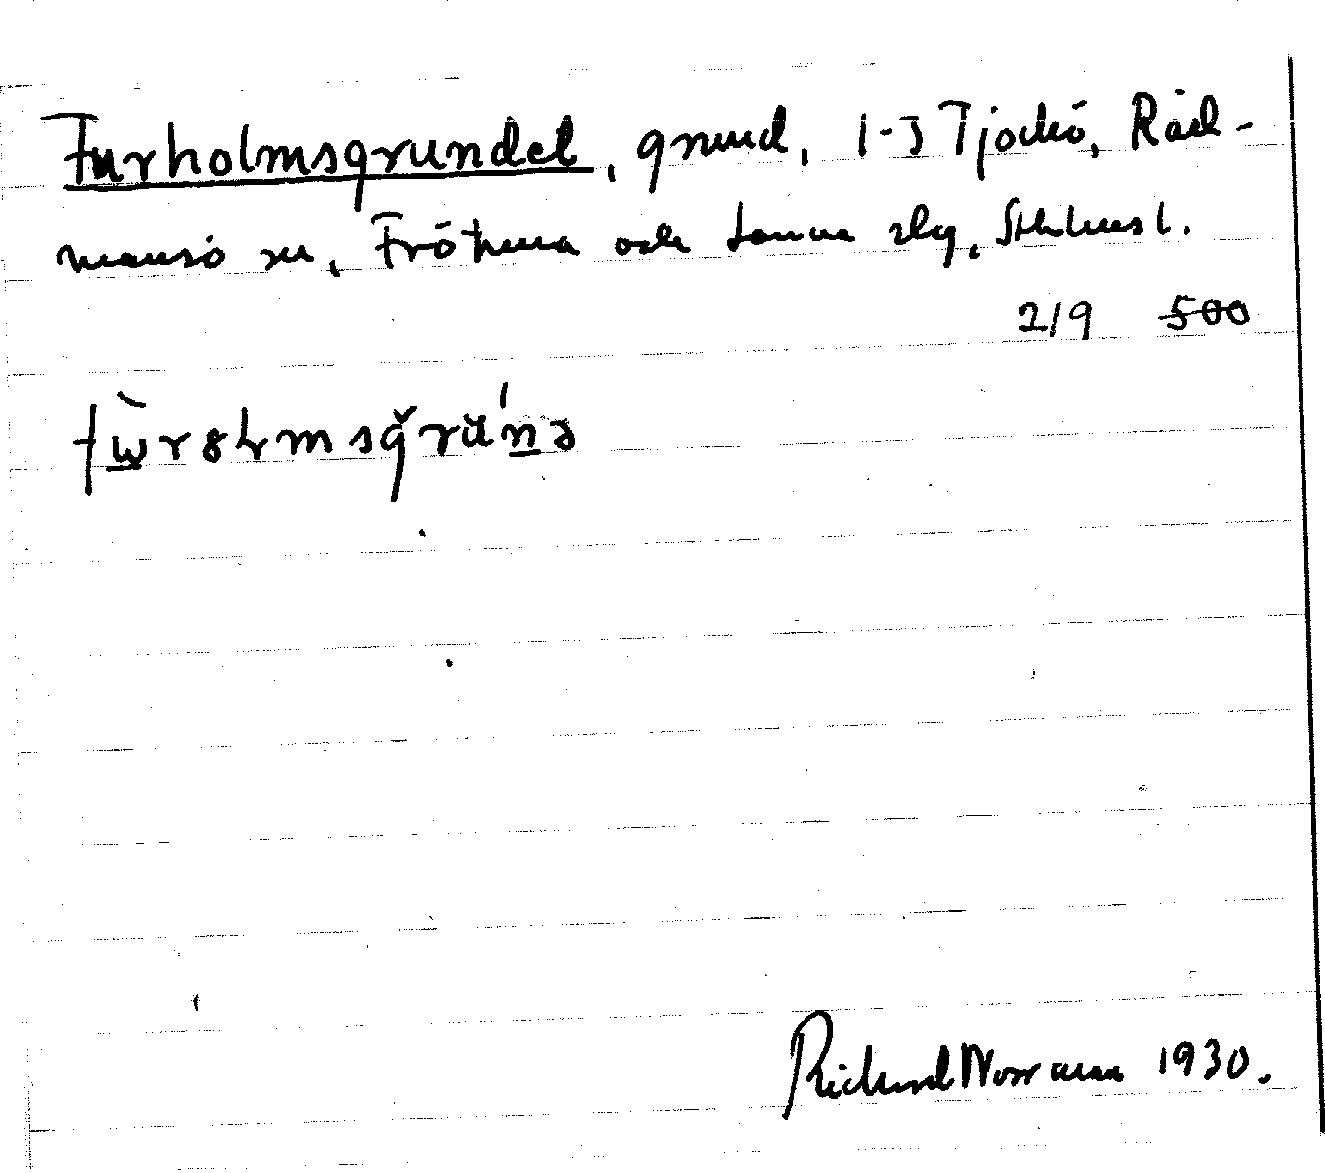 Furholmsgrundet, grund, 1-3 Tjockö, Råd-
mansö sn, Frötuna och Länna slg, Sthlms l.
2/9 500
Richard Norman 1930.